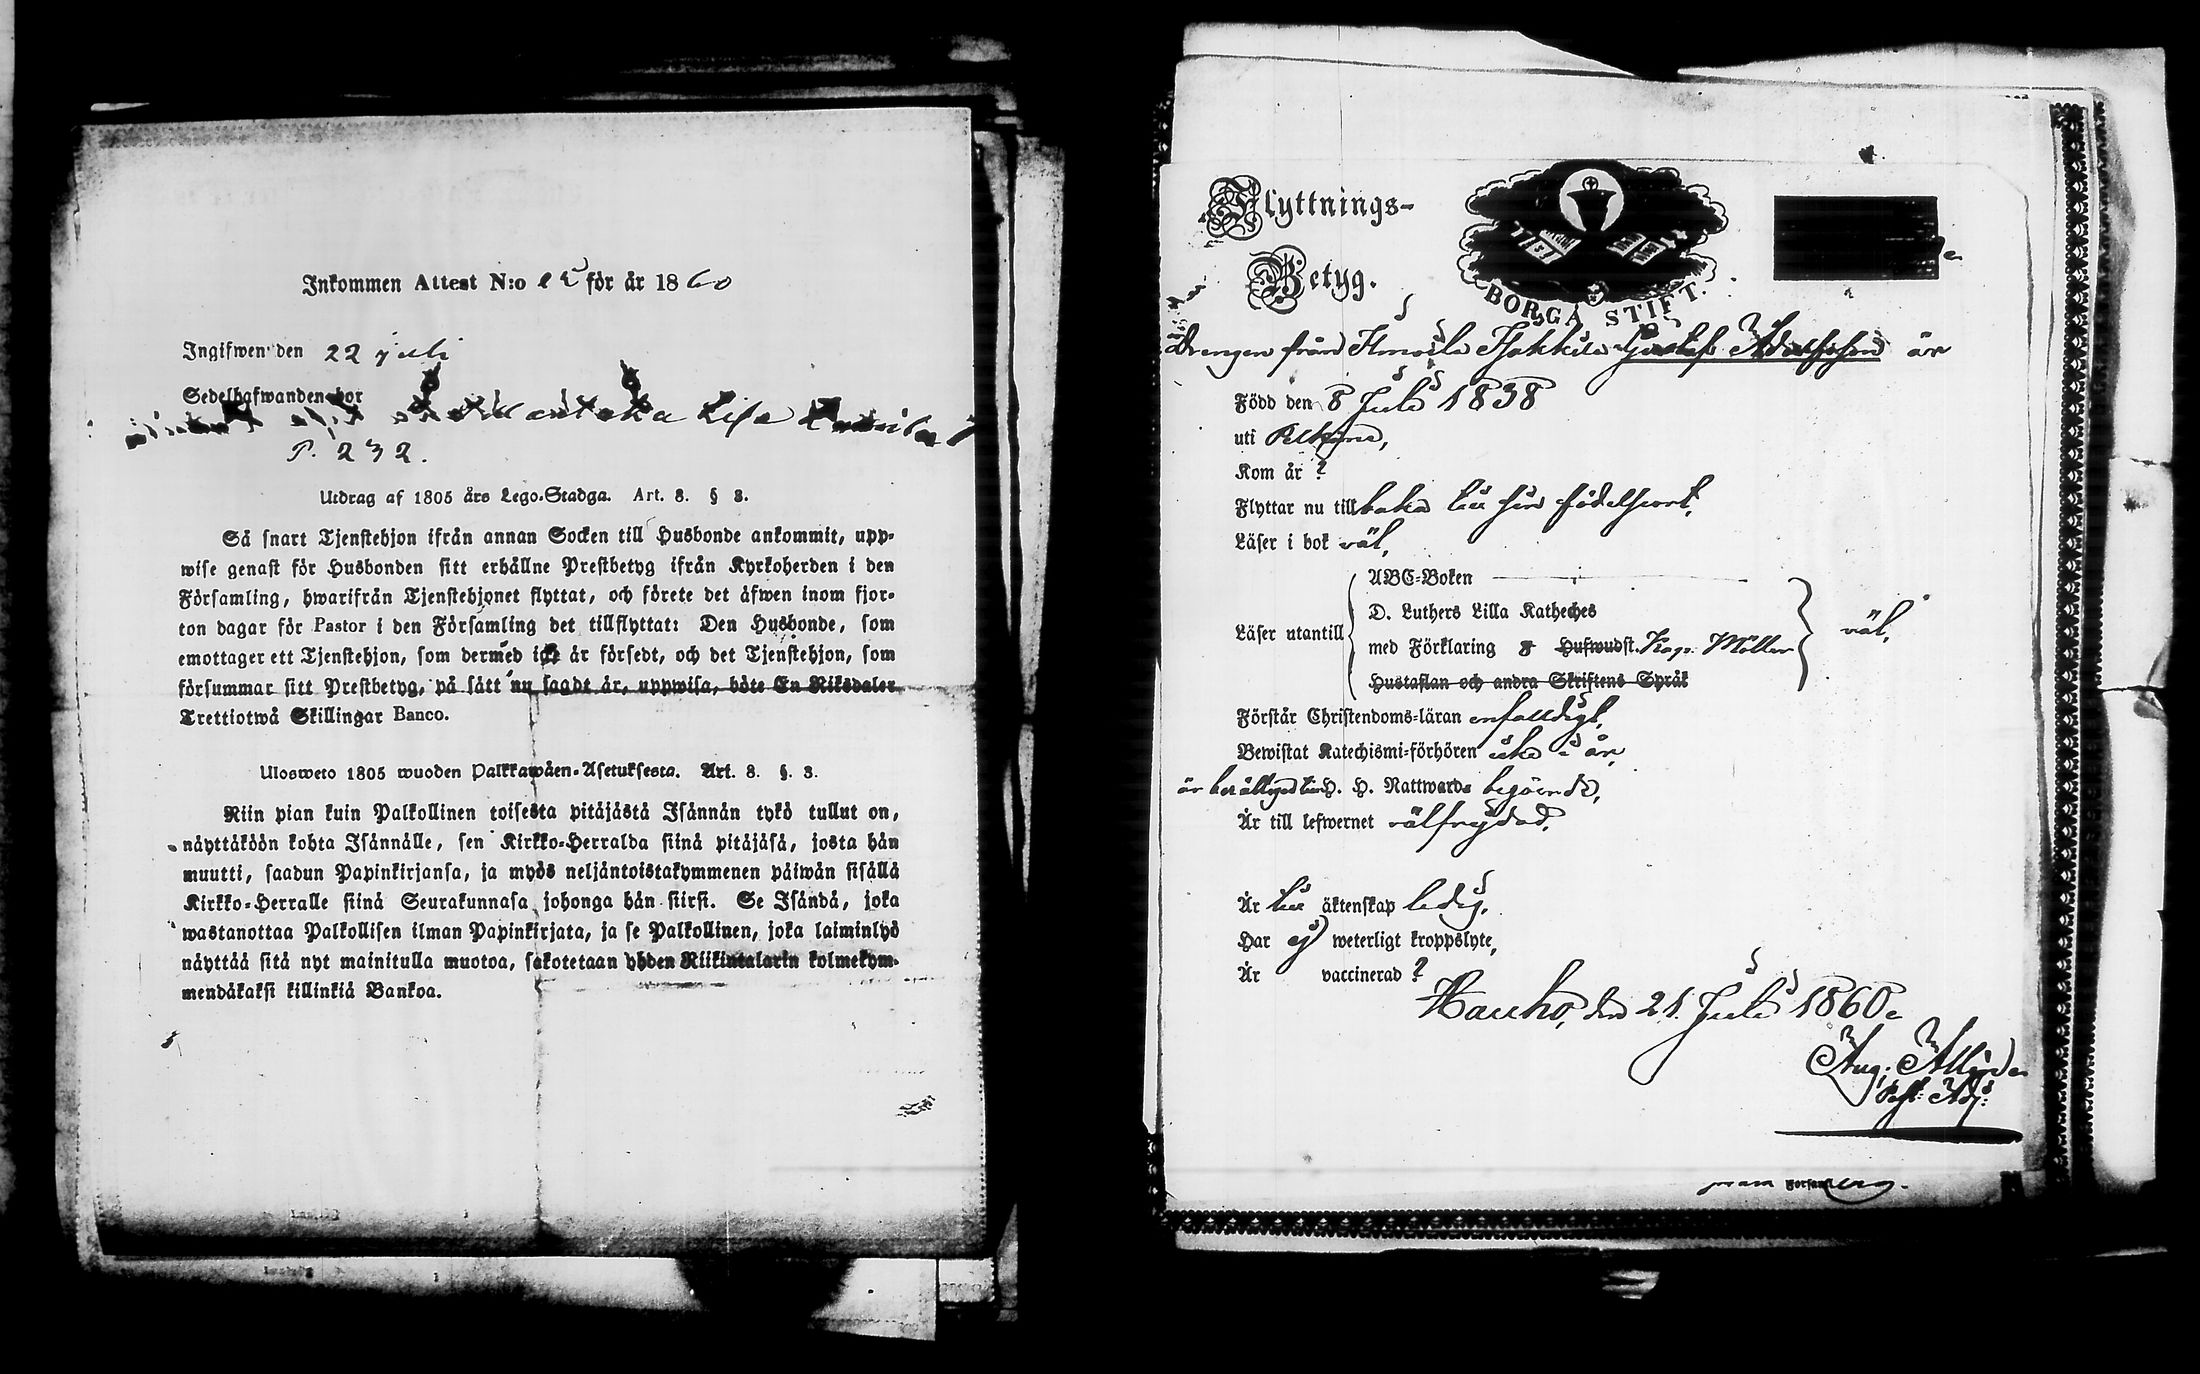 Inkommen Attest N:o för år 1860
Ingifwen den 22 juli
Sedelhafwanden bor
Lisa
P. 232.
Utdrag af 1805 års Lego-Stadga. Art. 8. § 3.
Så snart Tjenstehjon ifrån annan Socken till Husbonde ankommit, upp-
wise genast för Husbonden sitt erhållne Prestbetyg ifrån Kyrkoherden i den
Församling, hwarifrån Tjenstehjonet flyttat, och förete det äfwen inom fjor-
ton dagar för Pastor i den Församling det tillflyttat: Den Husbonde, som
emottager ett Tjenstehjon, som dermed icke är försedt, och det Tjenstehjon, som
försummar sitt Prestbetyg, på sätt nu sagdt är, uppwisa, böte En Riksdaler
Trettiotwå Skillingar Banco.
Ulosweto 1805 wuoden Palkkawäen-Asetuksesta. Art. 8. §. 3.
Niin pian kuin Palkollinen toisesta pitäjästä Isännän tykö tullut on,
näyttäköön kohta Isännälle, sen Kirkko-Herralda siinä pitäjäsä, josta hän
muutti, saadun Papinkirjansa, ja myös neljäntoistakymmenen päiwän sisällä
Kirkko-Herralle siinä Seurakunnasa johonga hän siirsi. Se Isändä, joka
wastanottaa Palkollisen ilman Papinkirjata, ja se Palkollinen, joka laiminlyö
näyttää sitä nyt mainitulla muotoa, sakotetaan yhden Riikintalarin kolmekym-
mendäkaksi killinkiä Bankoa.
Flyttnings-
Betyg.
BORGÅ STIFT.
Drengen från Hakkila Gustaf Adolfsson är
Född den 8 Juli 1838
uti Pelkäne,
Kom år ?
Flyttar nu tillbaka till sin födelseort,
Läser i bok väl,
Läser utantill
ABC-Boken
D. Luthers Lilla Katheches
med Förklaring & Hufwudst. Kap. Möller
Hustaflan och andra Skriftens Språk
väl,
Förstår Christendoms-läran enfalldigt,
Bewistat Katechismi-förhören icke i år,
är berättigad till H. H. Nattwards begående,
Är till lefwernet välfrejdad,
Är till äktenskap ledig,
Har ej weterligt kroppslyte,
Är vaccinerad ?
Hauho, den 21 Juli 1860.
Aug:
Past: Adj: